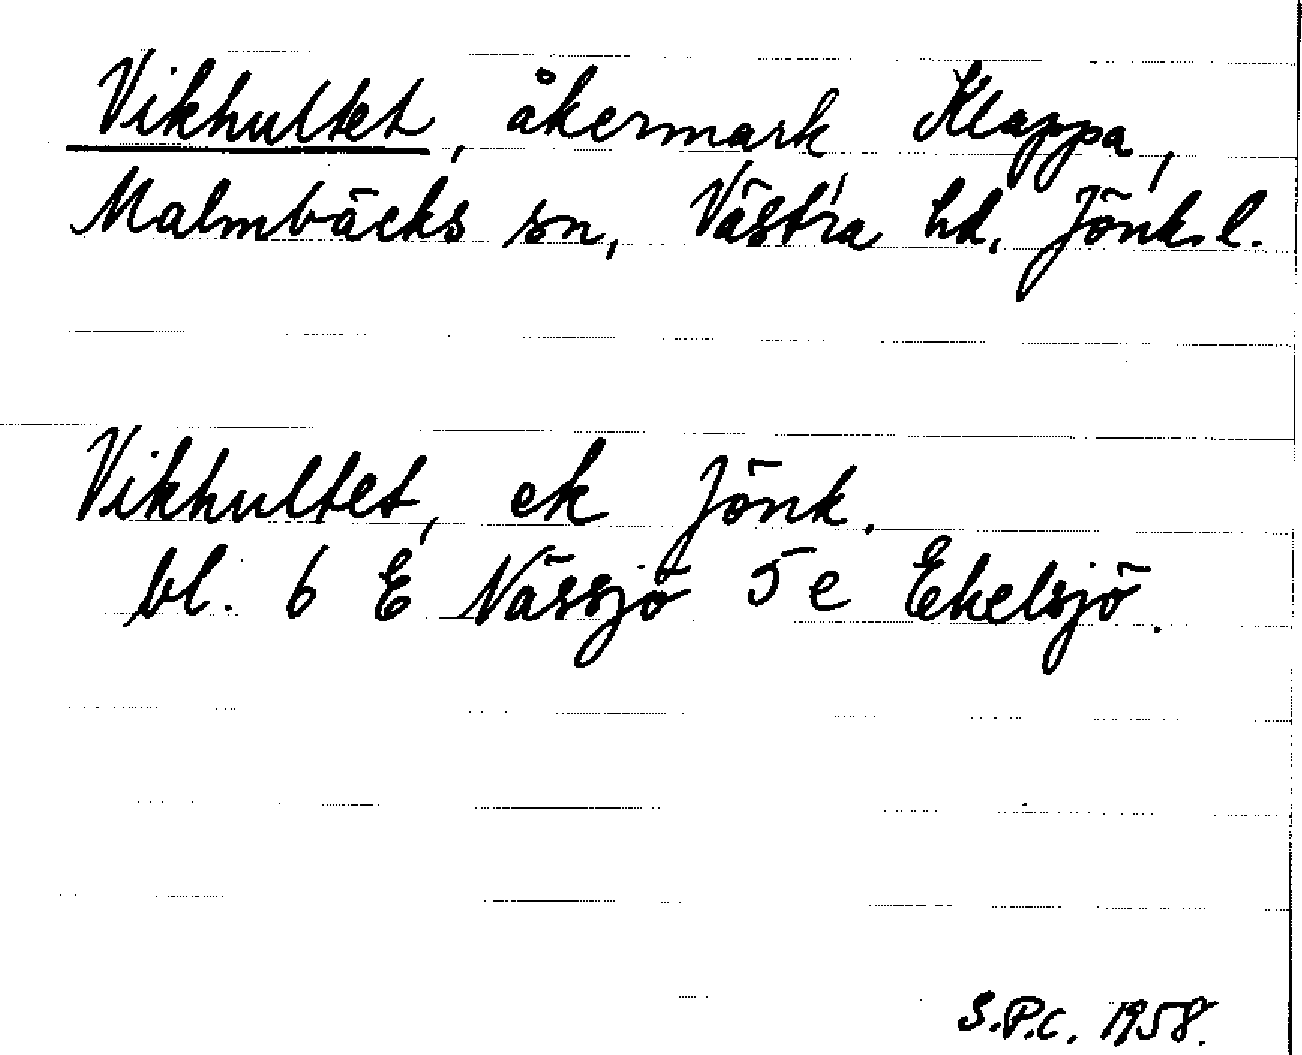 Vikhultet, åkermark Klappa,
Malmbäcks sn, Västra hd, Jönk. l.
Vikhultet, ek Jönk.
bl. 6 E Nässjö 5 e Ekelsjö.
S.P.C. 1958.